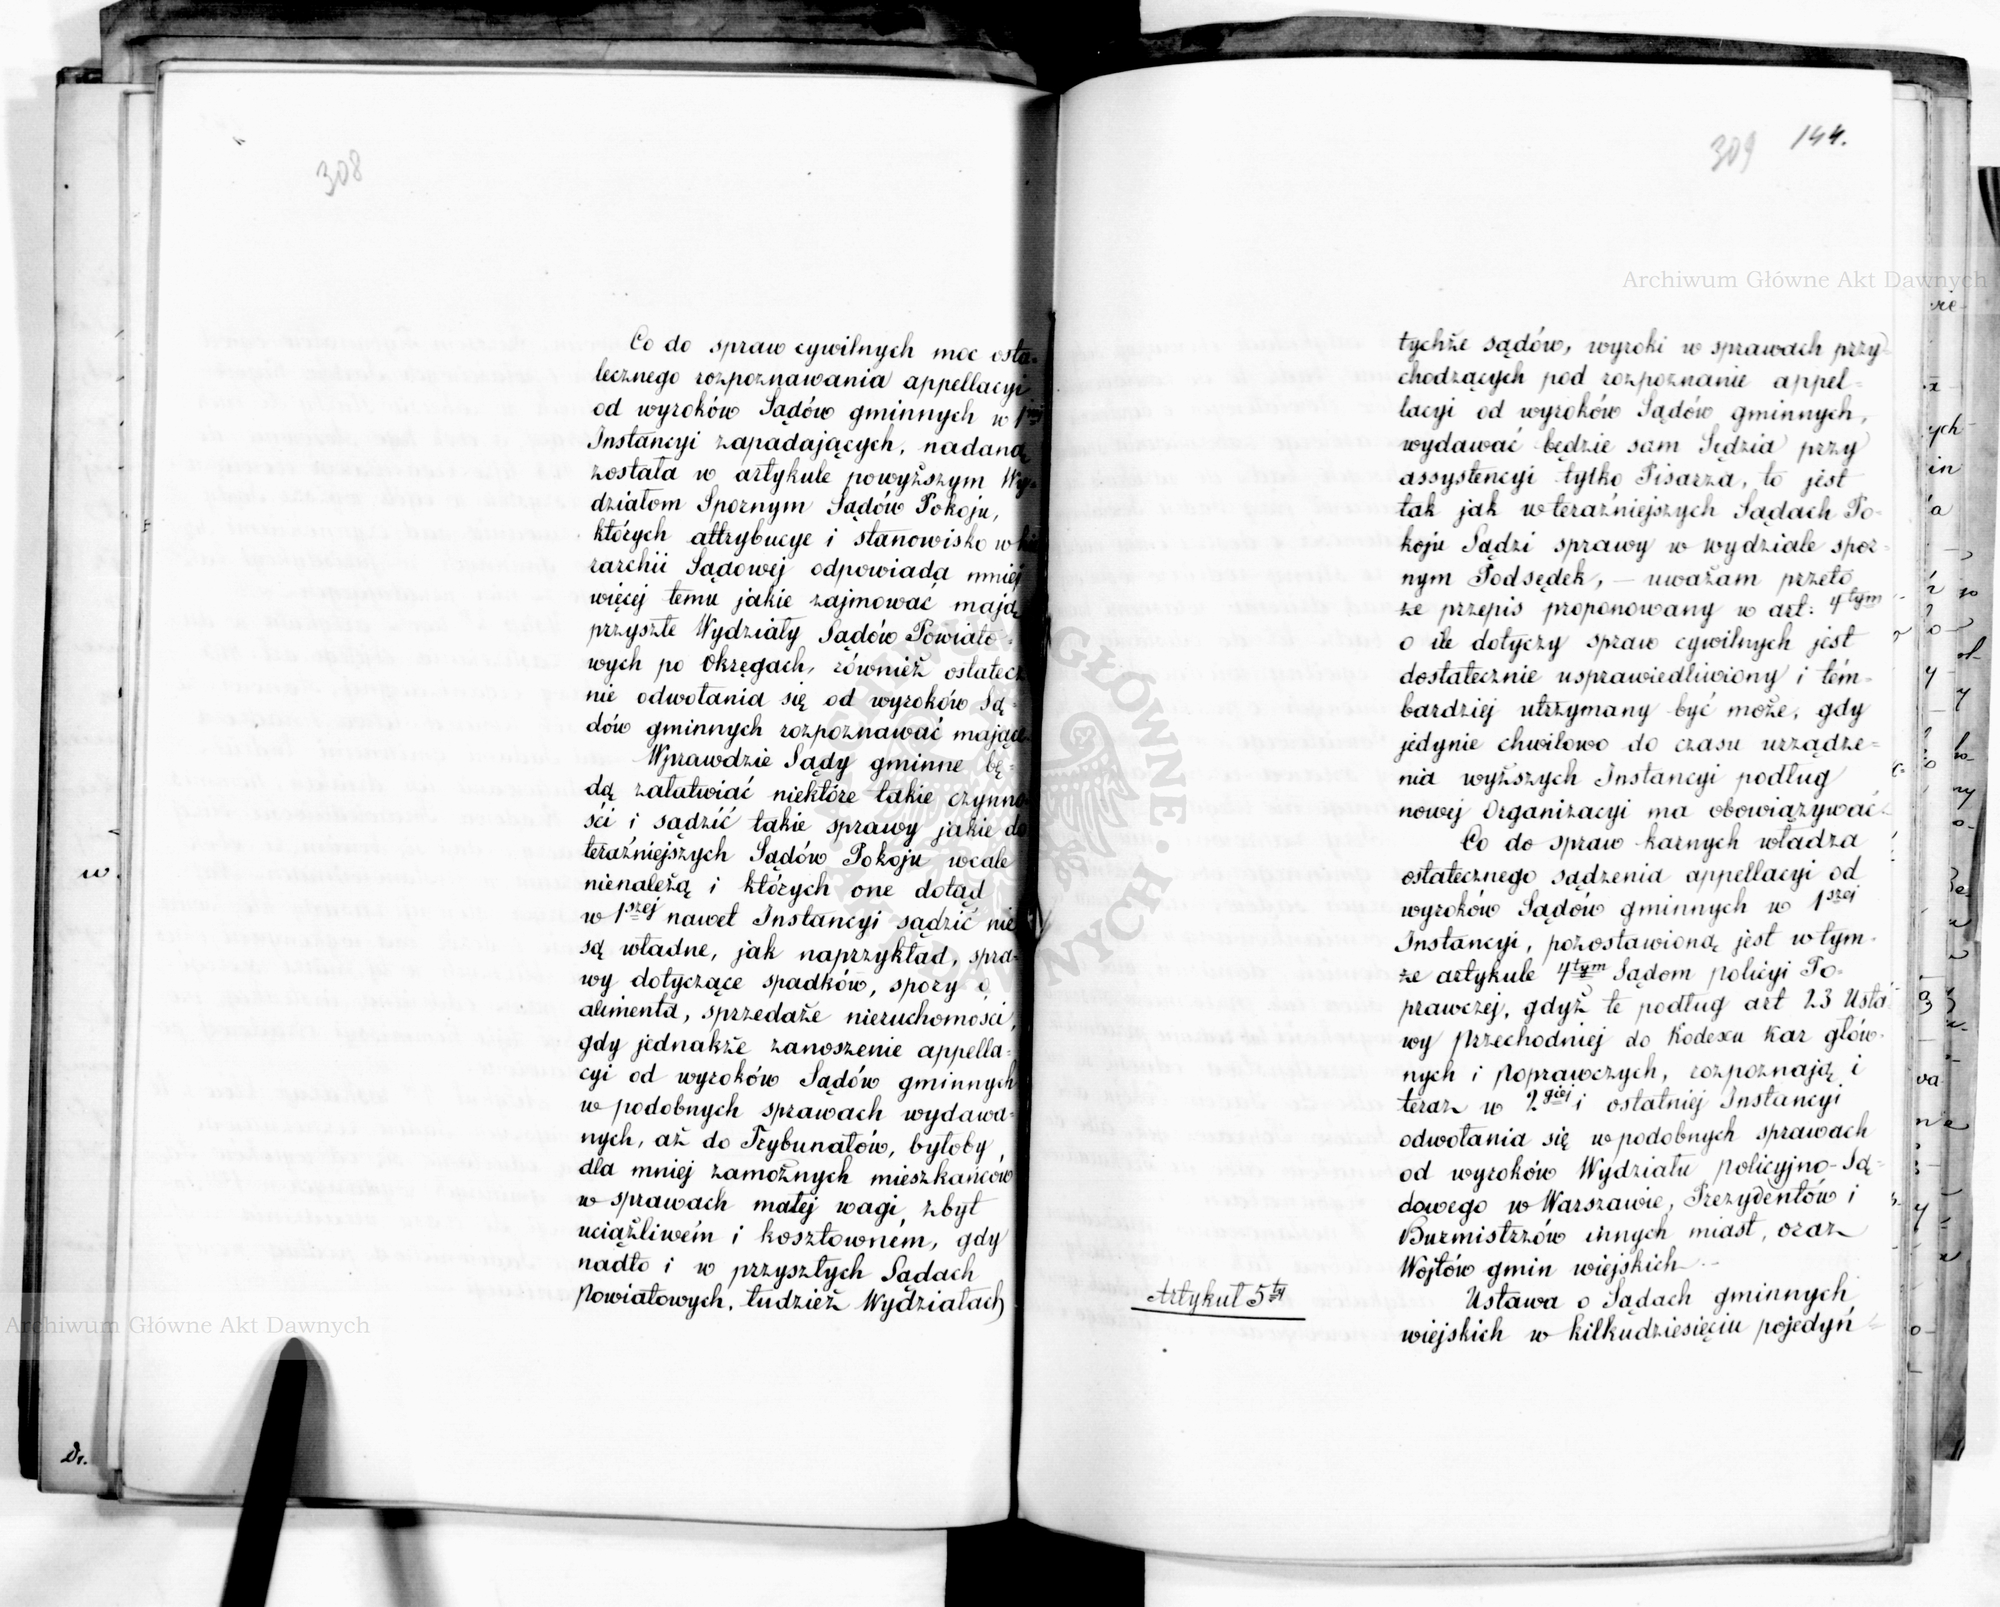 308
Co do spraw cywilnych moc osta-
tecznego rozpoznawania appellacyi
od wyroków Sądów gminnych w 1szej
Instancyi zapadających, nadaną
została w artykule powyższym Wy-
działom Spornym Sądów Pokoju,
których attrybucye i stanowisko w hie
rarchii Sądowej odpowiada mniej
więcej temu jakie zajmować mają
przyszłe Wydziały Sądów Powiato-
wych po Okręgach, również ostatecz
nie odwołania się od wyroków Są-
dów gminnych rozpoznawać mające.
Wprawdzie Sądy gminne bę-
dą załatwiać niektóre takie czynno-
ści i sądzić takie sprawy jakie do
teraźniejszych Sądów Pokoju wcale
nienależą i których one dotąd
w 1szej nawet Instancyi sądzić nie
są władne, jak naprzykład, spra-
wy dotyczące spadków, spory o
alimenta, sprzedaże nieruchomości,
gdy jednakże zanoszenie appella-
cyi od wyroków Sądów gminnych
w podobnych sprawach wydawa-
nych, aż do Trybunałów, byłoby
dla mniej zamożnych mieszkańców
w sprawach małej wagi, zbyt
uciążliwém i kosztowném, gdy
nadto i w przyszłych Sądach
Powiatowych, tudzież Wydziałach
309 144.
tychże sądów, wyroki w sprawach przy-
chodzących pod rozpoznanie appel-
lacyi od wyroków Sądów gminnych,
wydawać będzie sam Sędzia przy
assystencyi tylko Pisarza, to jest
tak jak w teraźniejszych Sądach Po-
koju Sądzi sprawy w wydziale spor-
nym Podsędek, – uważam przeto
że przepis proponowany w art: 4tym
o ile dotyczy spraw cywilnych jest
dostatecznie usprawiedliwiony i tém-
bardziej utrzymany być może, gdy
jedynie chwilowo do czasu urządze-
nia wyższych Instancyi podług
nowej Organizacyi ma obowiązywać.
Co do spraw karnych władza
ostatecznego sądzenia appellacyi od
wyroków Sądów gminnych w 1szej
Instancyi, pozostawioną jest w tym-
że artykule 4tym Sądom policyi Po-
prawczej, gdyż te podług art 23 Usta-
wy Przechodniej do Kodexu Kar głów-
nych i Poprawczych, rozpoznają i
teraz w 2giej i ostatniej Instancyi
odwołania się w podobnych sprawach
od wyroków Wydziału policyjno-Są-
dowego w Warszawie, Prezydentów i
Burmistrzów innych miast, oraz
Wójtów gmin wiejskich. –
Artykuł 5ty
Ustawa o Sądach gminnych
wiejskich w kilkudziesięciu pojedyń-
Archiwum Główne Akt Dawnych
Archiwum Główne Akt Dawnych
ARCHIWUM GŁÓWNE AKT DAWNYCH